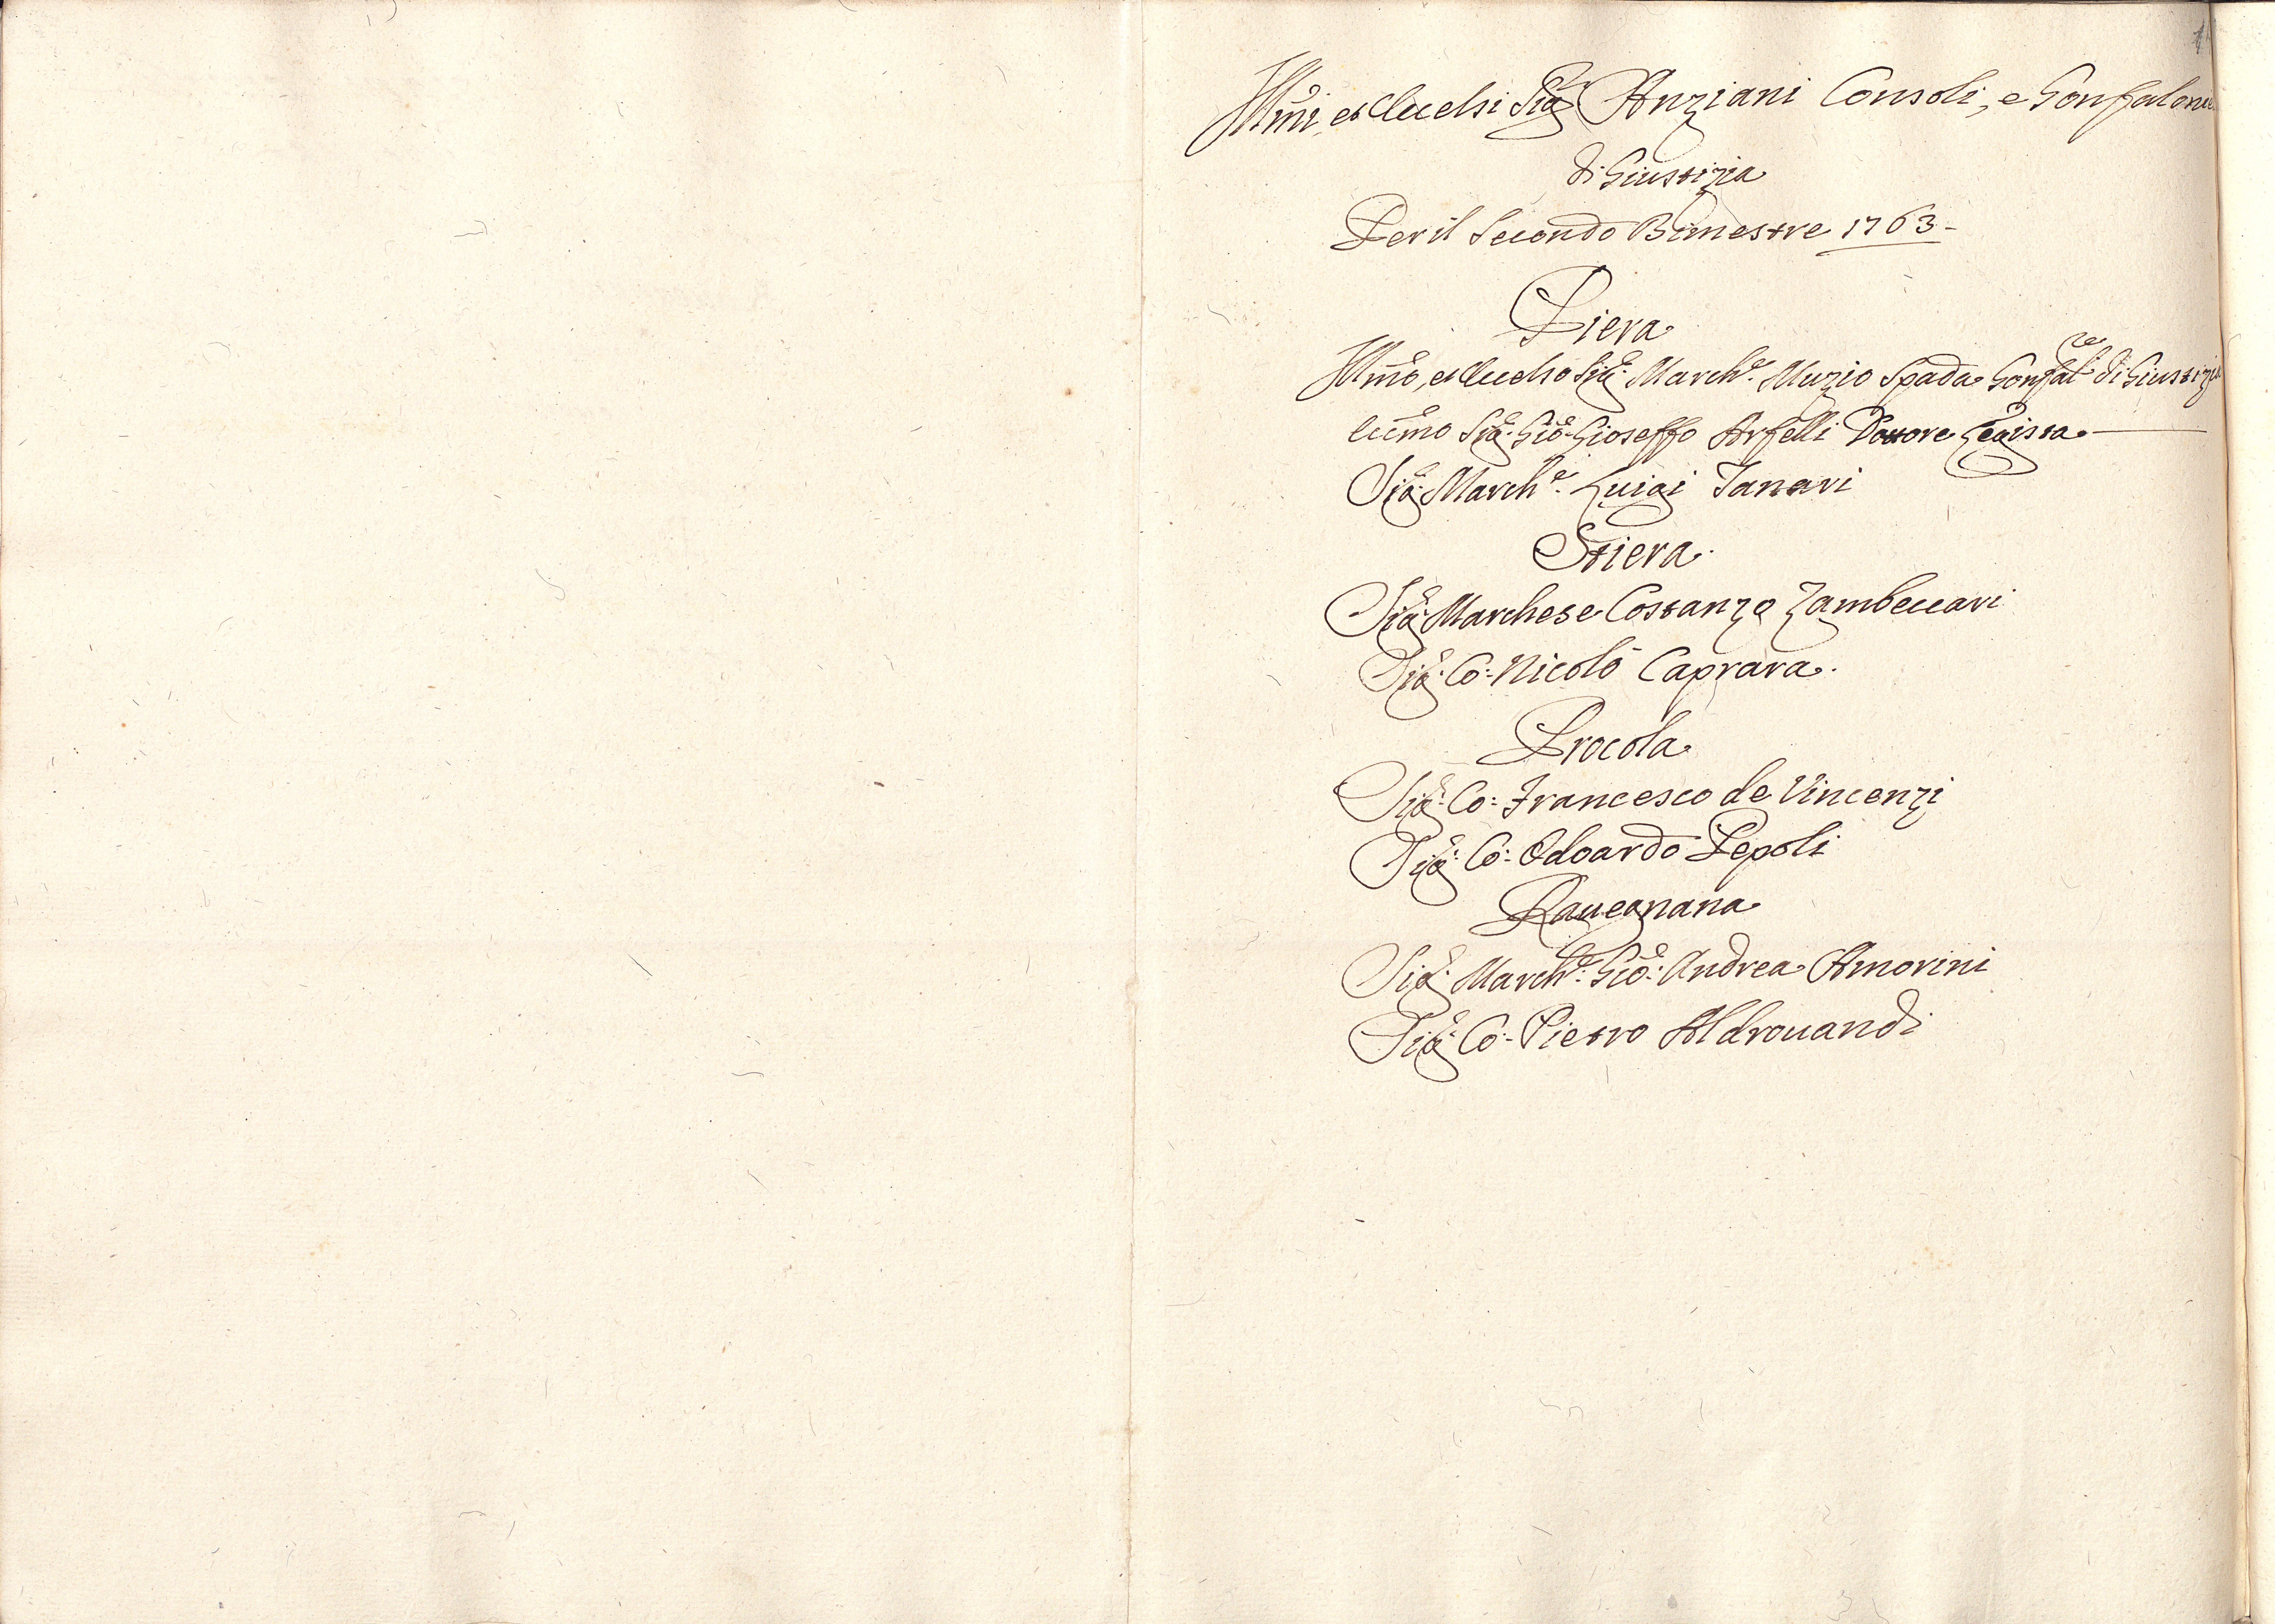 Illmi, et Eccelsi Sigri Anziani Consoli, e Gonfalonie
di Giustizia
Per il Secondo Bimestre 1763
Piera
Illmo, et Eccelso Sigr. March.e Muzio Spada Gonfal.re di Giustizia
Eccmo Sigr. Gio: Gioseffo Arfelli Dottore Legista
Sigr. March.e Luigi Tanari
Stiera.
Sigr. Marchese Costanzo Zambeccari
Sigr. Co: Nicolò Caprara.
Procola
Sigr. Co: Francesco de Vincenzi
Sigr. Co: Odoardo Pepoli
Rauegnana
Sigr. March.e Gio: Andrea Amorini
Sigr. Co: Pietro Aldrouandi